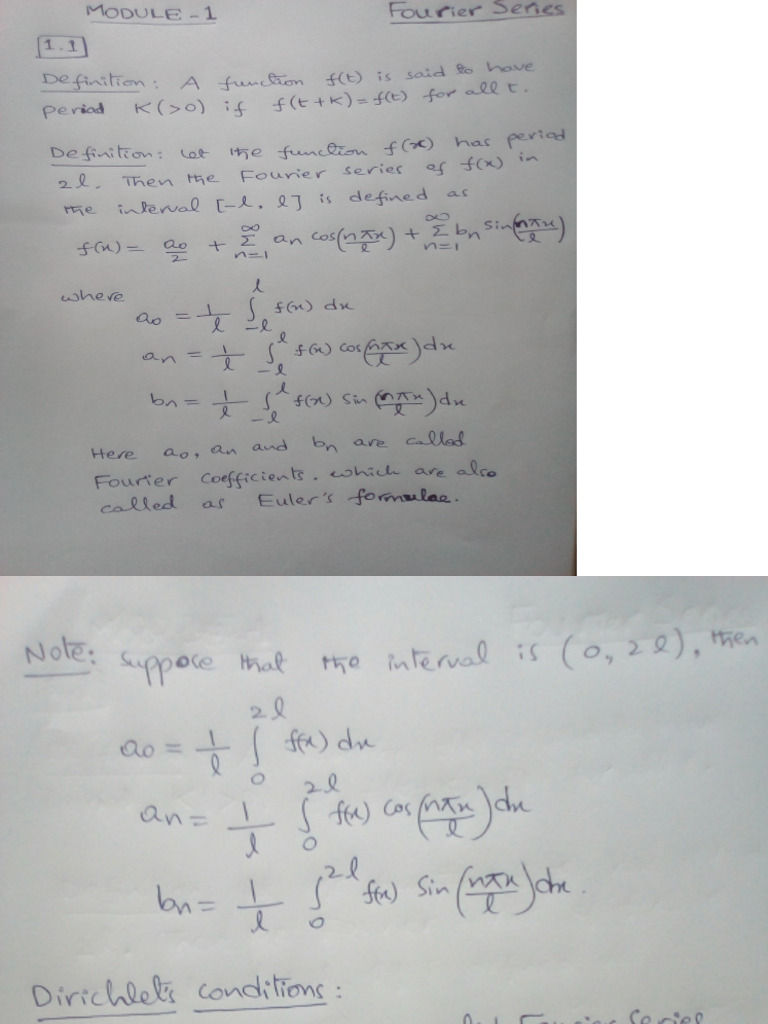 MODULE - 1 Fourier Series
1.1
Definition: A function f(t) is said to have
period K(>0) if f(t+K)=f(t) for all t.
Definition: Let the function f(x) has period
2l. Then the Fourier series of f(x) in
the interval [-l, l] is defined as
f(x) = a₀/2 + ∞Σn=1 an cos(nπx/l) + ∞Σn=1 bn sin(nπx/l)
where
a₀ = 1/l ∫_{-l}^{l} f(x) dx
an = 1/l ∫_{-l}^{l} f(x) cos(nπx/l) dx
bn = 1/l ∫_{-l}^{l} f(x) sin(nπx/l) dx
Here a₀, an and bn are called
Fourier coefficients. which are also
called as Euler's formulae.
Note: Suppose that the interval is (0, 2l), then
a₀ = 1/l ∫_{0}^{2l} f(x) dx
an = 1/l ∫_{0}^{2l} f(x) cos(nπx/l) dx
bn = 1/l ∫_{0}^{2l} f(x) sin(nπx/l) dx.
Dirichlet's conditions:
Fourier Series